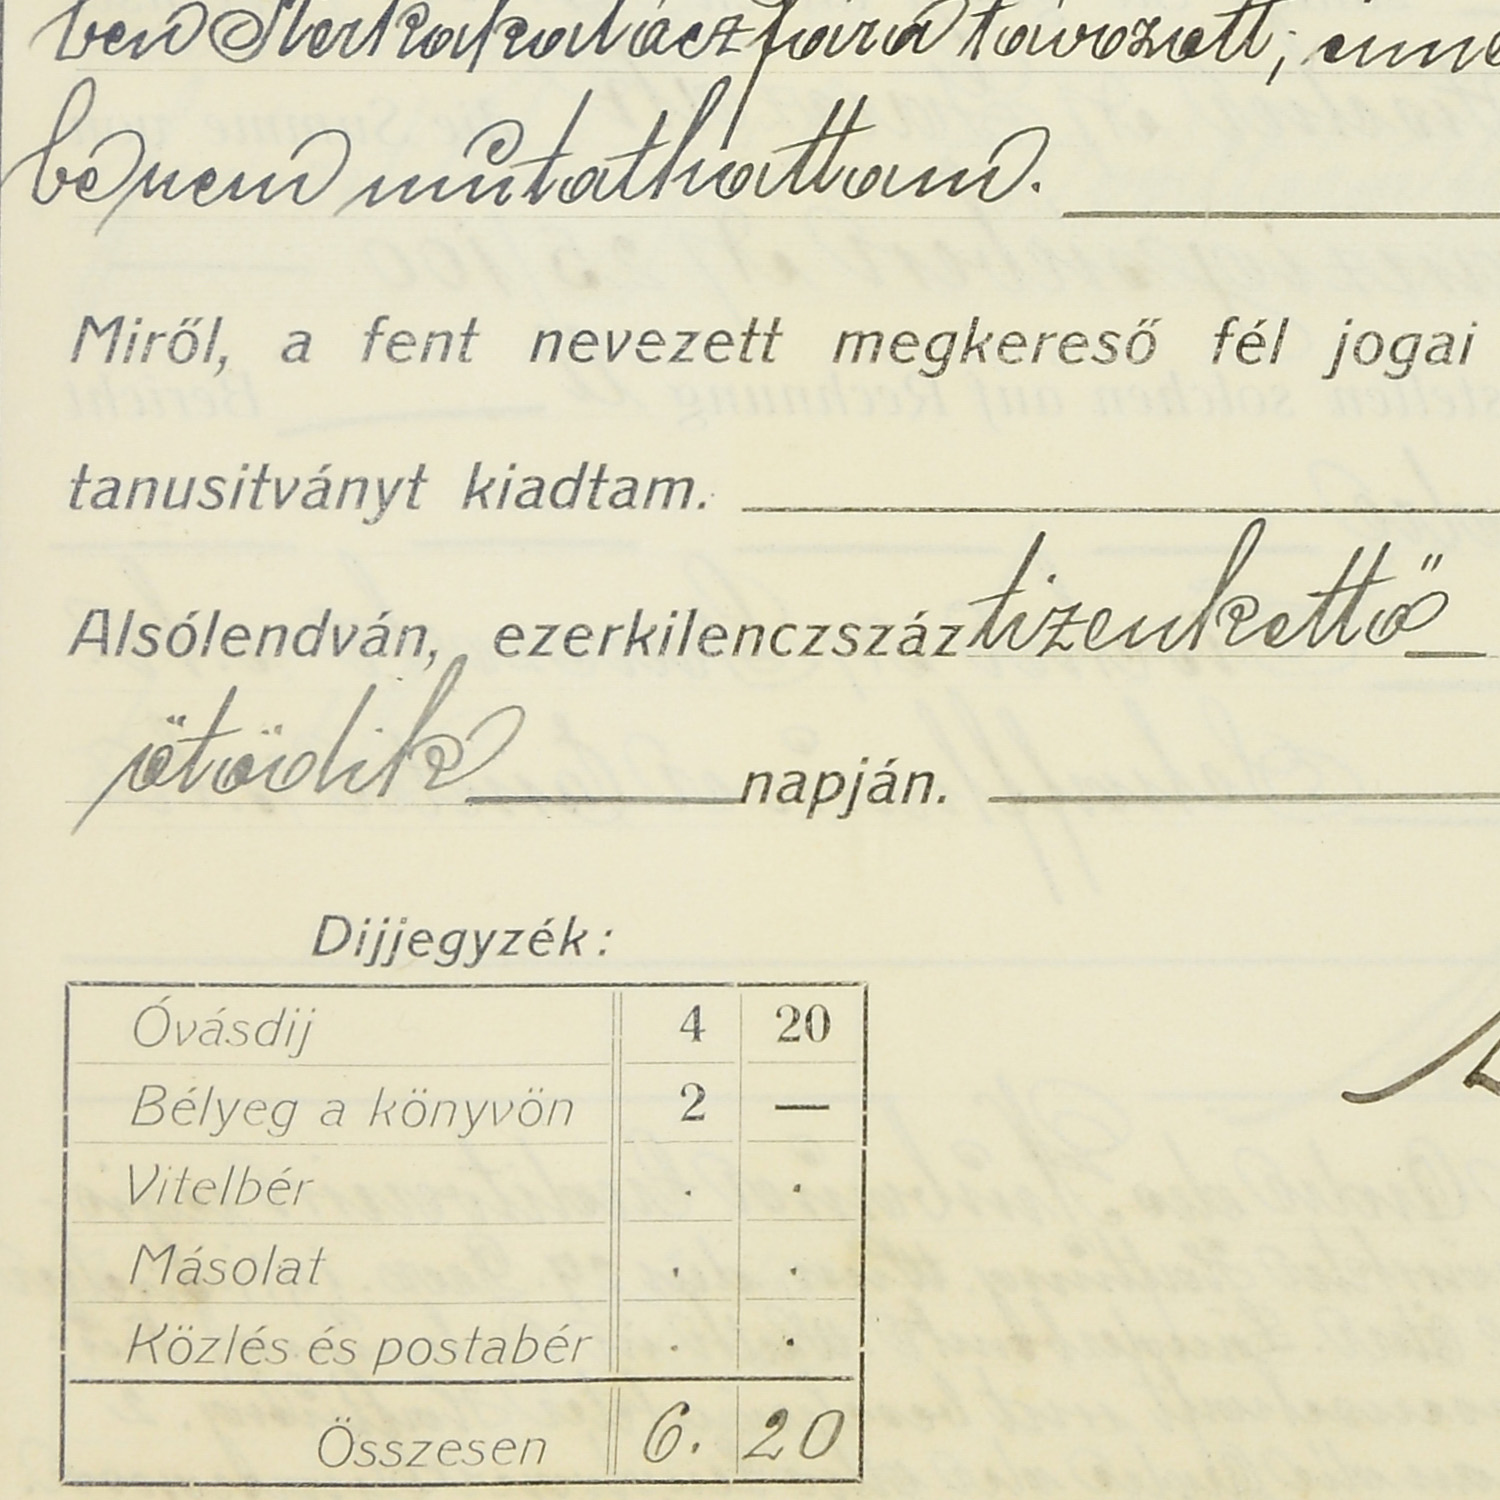 ben Sterkakatáczfára távozott;
be nem mutathattam.
Miről, a fent nevezett megkereső fél jogai
tanusitványt kiadtam.
Alsólendván, ezerkilenczszáz tizenkettő
ötödik napján.
Dijjegyzék:
Óvásdij 4 20
Bélyeg a könyvön 2 —
Vitelbér . .
Másolat . .
Közlés és postabér . .
Összesen 6. 20